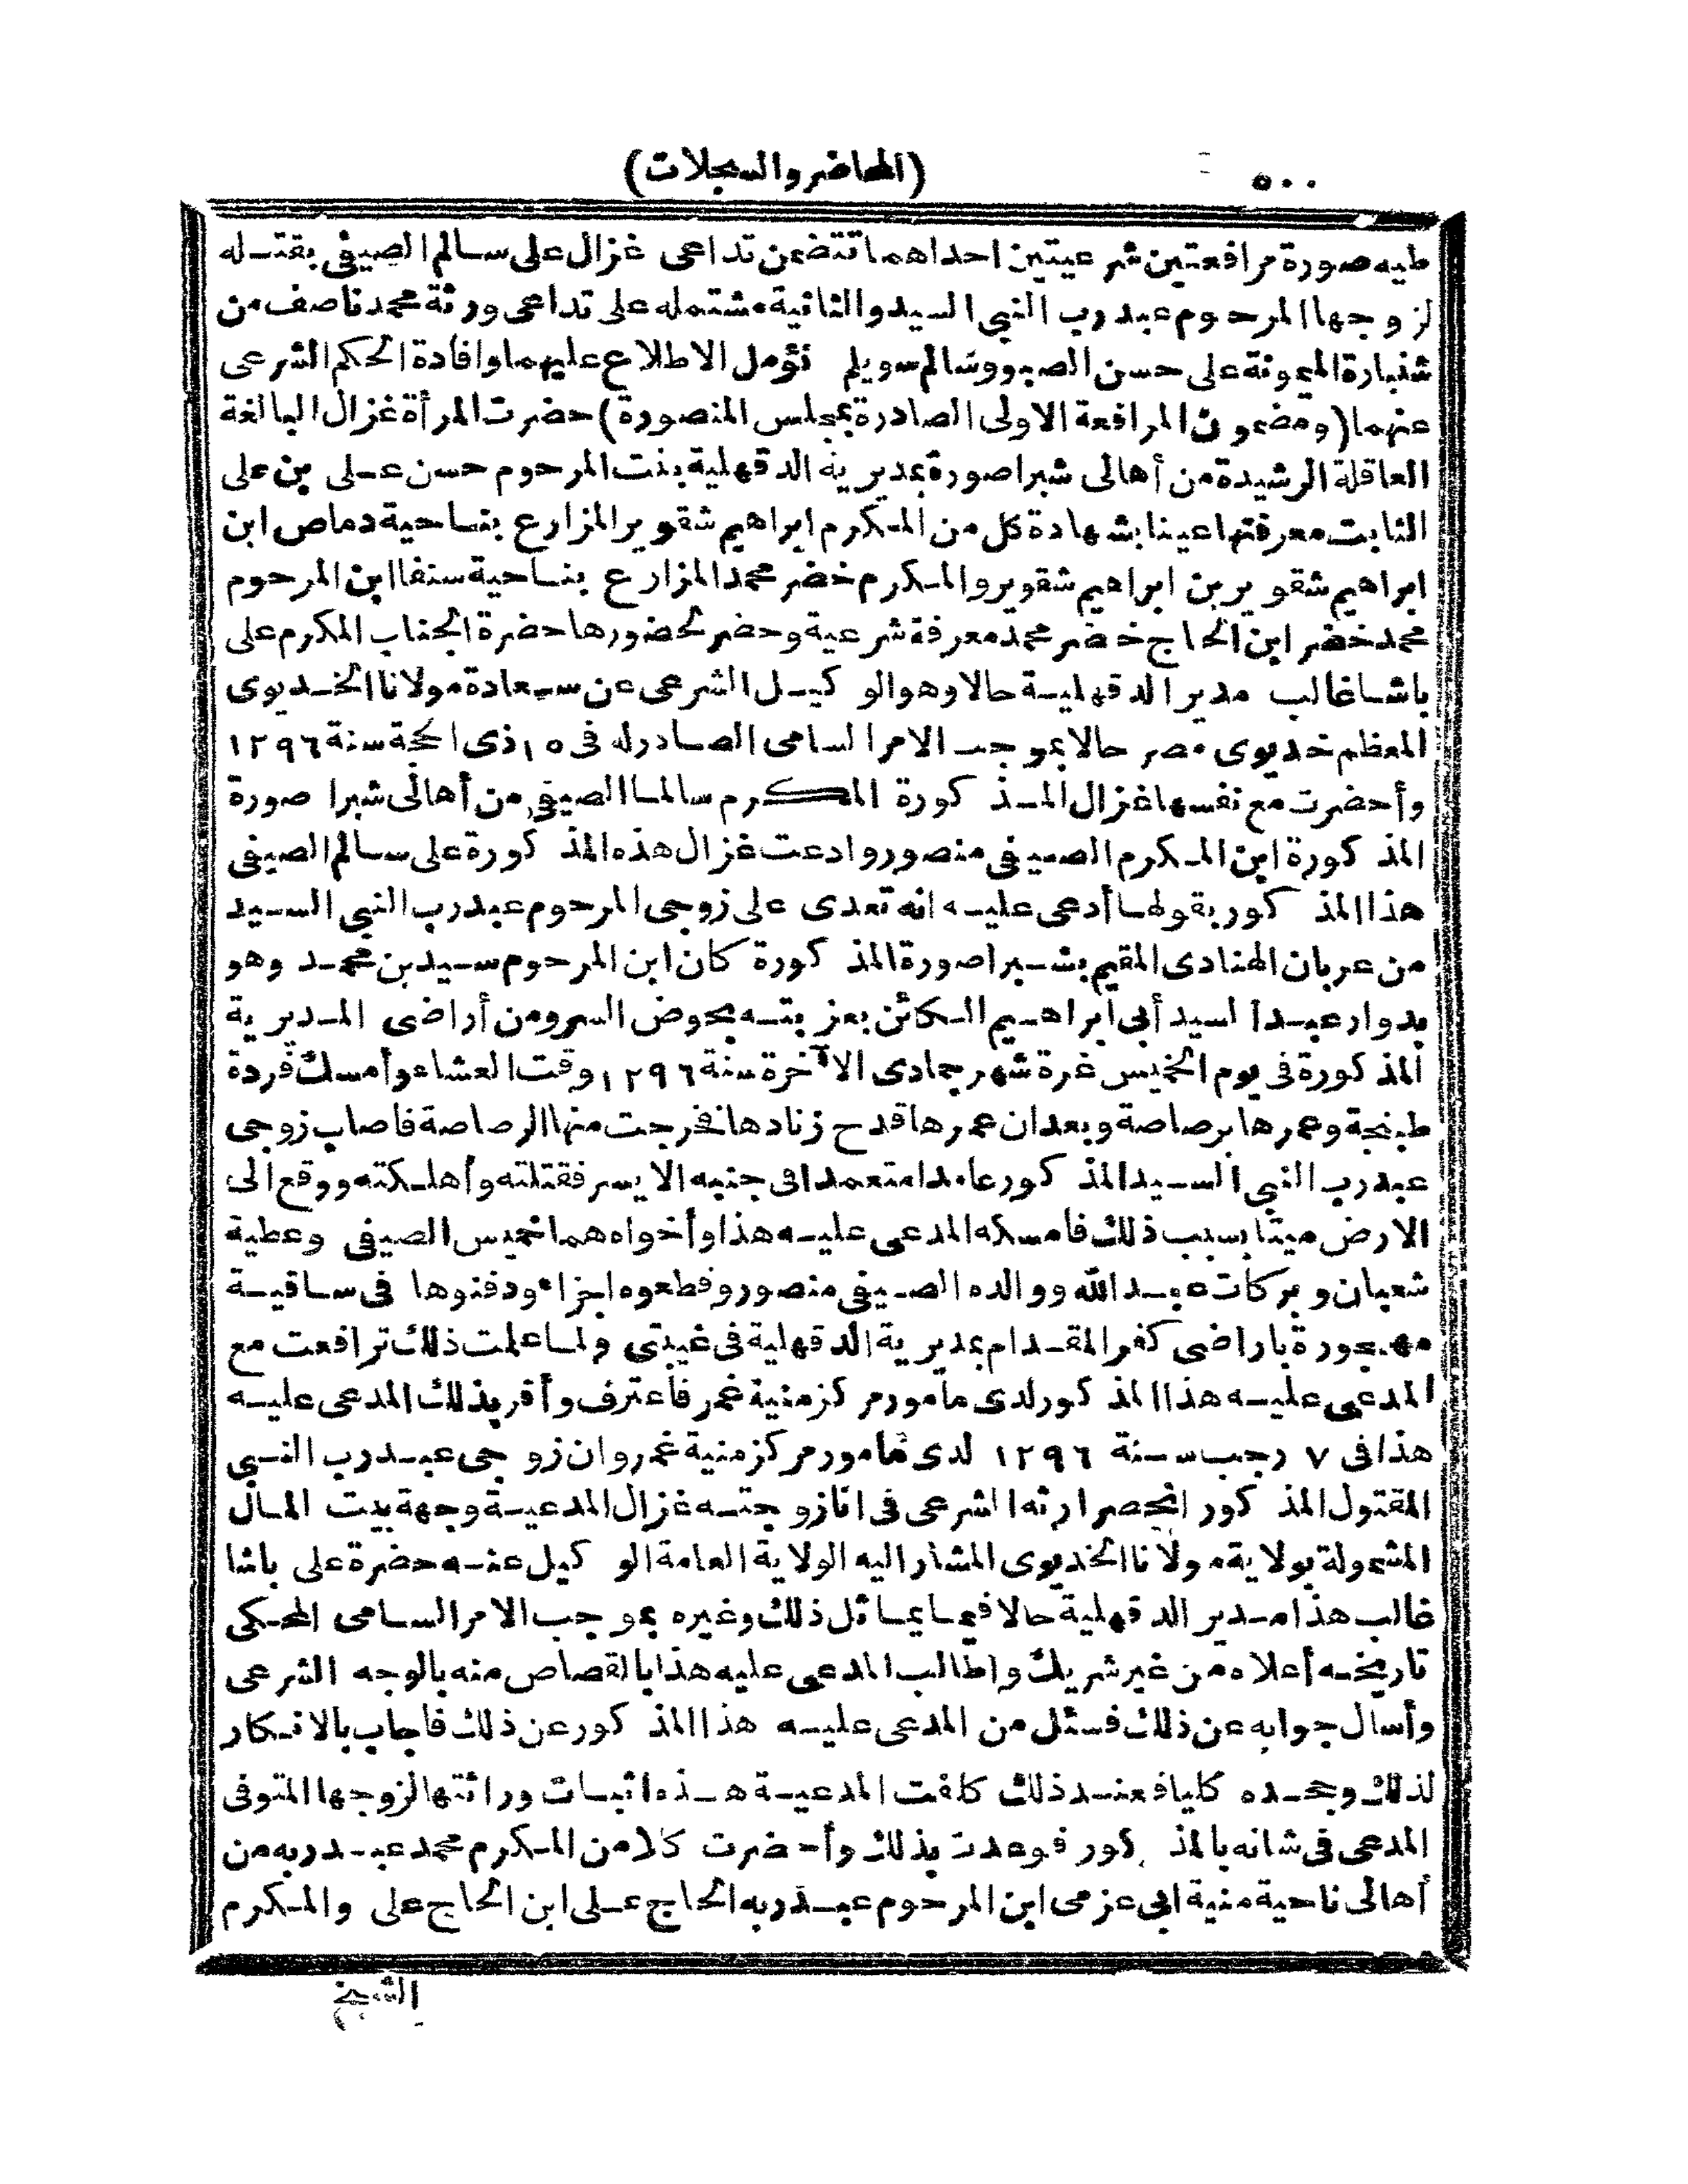 ٥٠٠
(المحاضر والسجلات)
طيه صورة مرافعتين شرعيتين احداهما تتضمن تداعى غزال على سالم الصيفى بقتله
لزوجها المرحوم عبد رب النبي السيد والثانية مشتمله على تداعى ورثة محمد ناصف من
شنبارة الميمونة على حسن الصبو وسالم سويلم نؤمل الاطلاع عليهما وافادة الحكم الشرعى
عنهما (ومضمون المرافعة الاولى الصادرة بمجلس المنصورة) حضرت المرأة غزال البالغة
العاقلة الرشيدة من أهالى شبراصورة بمديرية الدقهلية بنت المرحوم حسن على بن على
الثابت معرفتها عينا بشهادة كل من المكرم ابراهيم شقوير المزارع بناحية دماص ابن
ابراهيم شقوير بن ابراهيم شقوير والمكرم خضر محمد المزارع بناحية سنفا ابن المرحوم
محمد خضر ابن الحاج خضر محمد معرفة شرعية وحضر لحضورها حضرة الجناب المكرم على
باشا غالب مدير الدقهلية حالا وهو الوكيل الشرعى عن سعادة مولانا الخديوى
المعظم خديوى مصر حالا بموجب الامر السامى الصادر له فى ١٥ ذى الحجة سنة ١٢٩٦
وأحضرت مع نفسها غزال المذكورة المكرم سالما الصيفى من أهالى شبرا صورة
المذكورة ابن المكرم الصيفى منصور وادعت غزال هذه المذكورة على سالم الصيفى
هذا المذكور بقولها أدعى عليه انه تعدى على زوجى المرحوم عبد رب النبي السيد
من عربان الهنادى المقيم بشبراصورة المذكورة كان ابن المرحوم سيد بن محمد وهو
بدوار عبد السيد أبى ابراهيم الكائن بعزبته بحوض السرو من أراضى المديرية
المذكورة فى يوم الخميس غرة شهر جمادى الآخرة سنة ١٢٩٦ وقت العشاء وأمسك فردة
طبنجة وعمرها برصاصة وبعد ان عمرها قدح زنادها فخرجت منها الرصاصة فاصاب زوجى
عبد رب النبي السيد المذكور عامدا متعمدا فى جنبه الايسر فقتلته وأهلكته ووقع الى
الارض ميتا بسبب ذلك فامسكه المدعى عليه هذا وأخواه هما خميس الصيفى وعطية
شعبان وبركات عبد الله ووالده الصيفى منصور وقطعوه اجزاء ودفنوها فى ساقية
مهجورة باراضى كفر المقدام بمديرية الدقهلية فى غيبتى ولما علمت ذلك ترافعت مع
المدعى عليه هذا المذكور لدى مأمور مركز منية غمر فاعترف وأقر بذلك المدعى عليه
هذا فى ٧ رجب سنة ١٢٩٦ لدى مأمور مركز منية غمر وان زوجى عبد رب النبي
المقتول المذكور انحصر ارثه الشرعى فى انا زوجته غزال المدعية وجهة بيت المال
المشمولة بولاية مولانا الخديوى المشار اليه الولاية العامة الوكيل عنه حضرة على باشا
غالب هذا مدير الدقهلية حالا فيما يماثل ذلك وغيره بموجب الامر السامى المحكى
تاريخه أعلاه من غير شريك واطالب المدعى عليه هذا بالقصاص منه بالوجه الشرعى
وأسال جوابه عن ذلك فسئل من المدعى عليه هذا المذكور عن ذلك فاجاب بالانكار
لذلك وجحده كليا فعند ذلك كلفت المدعية هذه اثبات وراثتها لزوجها المتوفى
المدعى فى شانه بالمذكور فوعدت بذلك وأحضرت كلا من المكرم محمد عبد ربه من
أهالى ناحية منية ابى عزمى ابن المرحوم عبد ربه الحاج على ابن الحاج على والمكرم
الشيخ